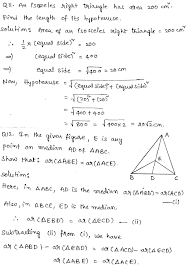 Q11. An Isosceles right triangle has area 200 cm².
Find the length of its hypotenuse.
Solution: Area of an Isosceles right triangle = 200 cm²
∴ 1/2 × (equal side)² = 200
⇒ (equal side)² = 400
⇒ equal side = √400 = 20 cm
Now, Hypotenuse = √(equal side)² + (equal side)²
= √(20)² + (20)²
= √400 + 400
= √800 = √400×2 = 20√2 cm.
Q12. In the given figure, E is any
point on median AD of ΔABC.
Show that: ar(ΔABE) = ar(ΔACE)
A
E
B D C
Solution:
Here, in ΔABC, AD is the median
∴ ar(ΔABD) = ar(ΔACD) —(i)
Also, in ΔEBC, ED is the median
∴ ar(ΔEBD) = ar(ΔECD) —(ii)
Subtracting (ii) from (i), we have
ar(ΔABD) - ar(ΔEBD) = ar(ΔACD) - ar(ΔECD)
⇒ ar(ΔABE) = ar(ΔACE)